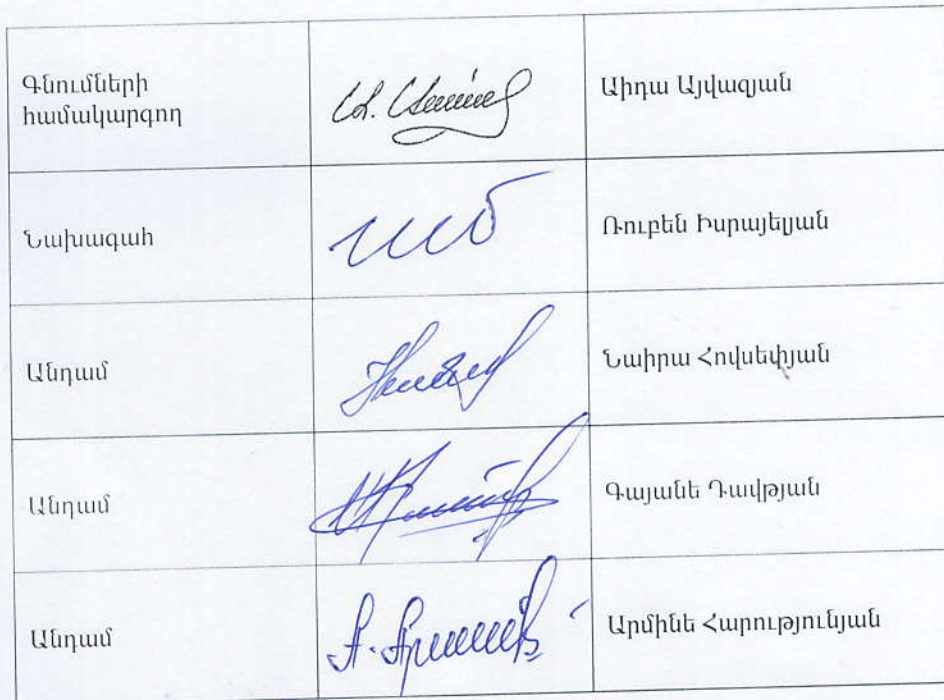 Գնումների
համակարգող
Աիդա Այվազյան
Նախագահ
Ռուբեն Իսրայելյան
Անդամ
Նաիրա Հովսեփյան
Անդամ
Գայանե Դավթյան
Անդամ
Արմինե Հարությունյան